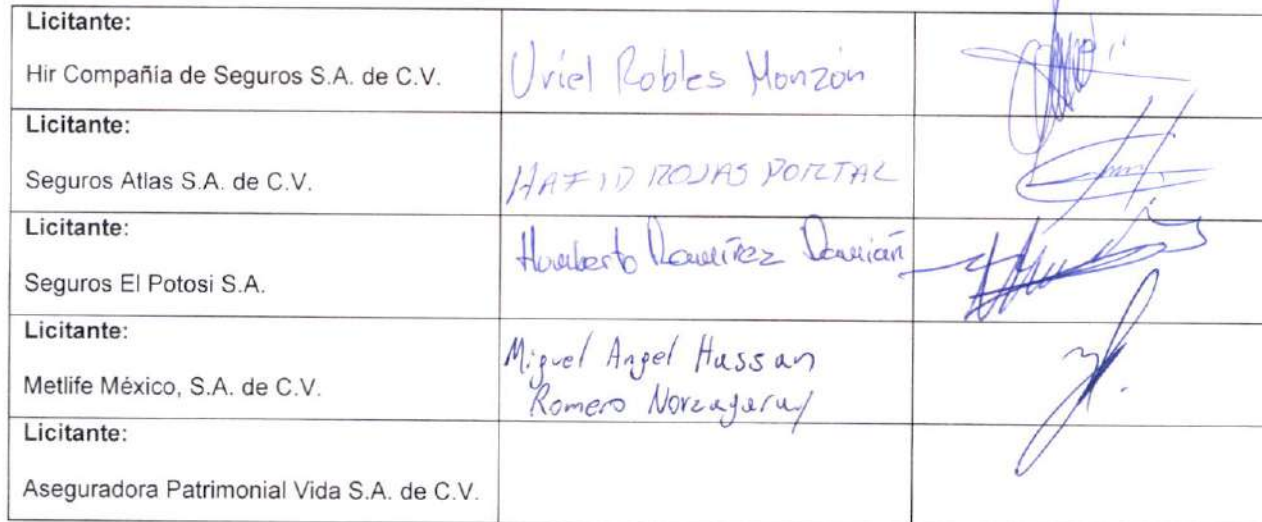 Licitante:
Hir Compañía de Seguros S.A. de C.V.
Uriel Robles Monzón
Licitante:
Seguros Atlas S.A. de C.V.
HAFID ROJAS PORTAL
Licitante:
Seguros El Potosi S.A.
Humberto Ramírez Damián
Licitante:
Metlife México, S.A. de C.V.
Miguel Angel Hassan
Romero Norzagaray
Licitante:
Aseguradora Patrimonial Vida S.A. de C.V.